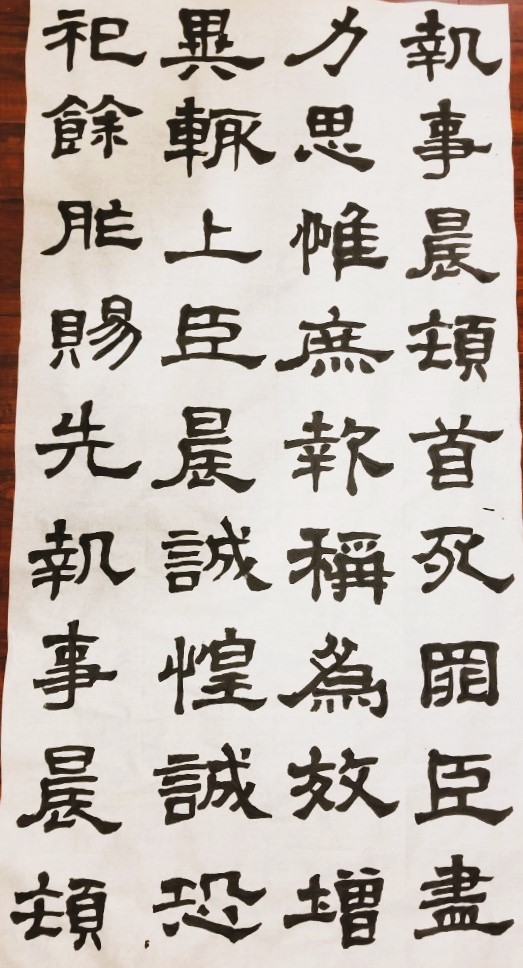 執事晨頓首死罪臣盡
力思惟庶報稱爲效增
異輒上臣晨誠惶誠恐
祀餘胙賜先執事晨頓